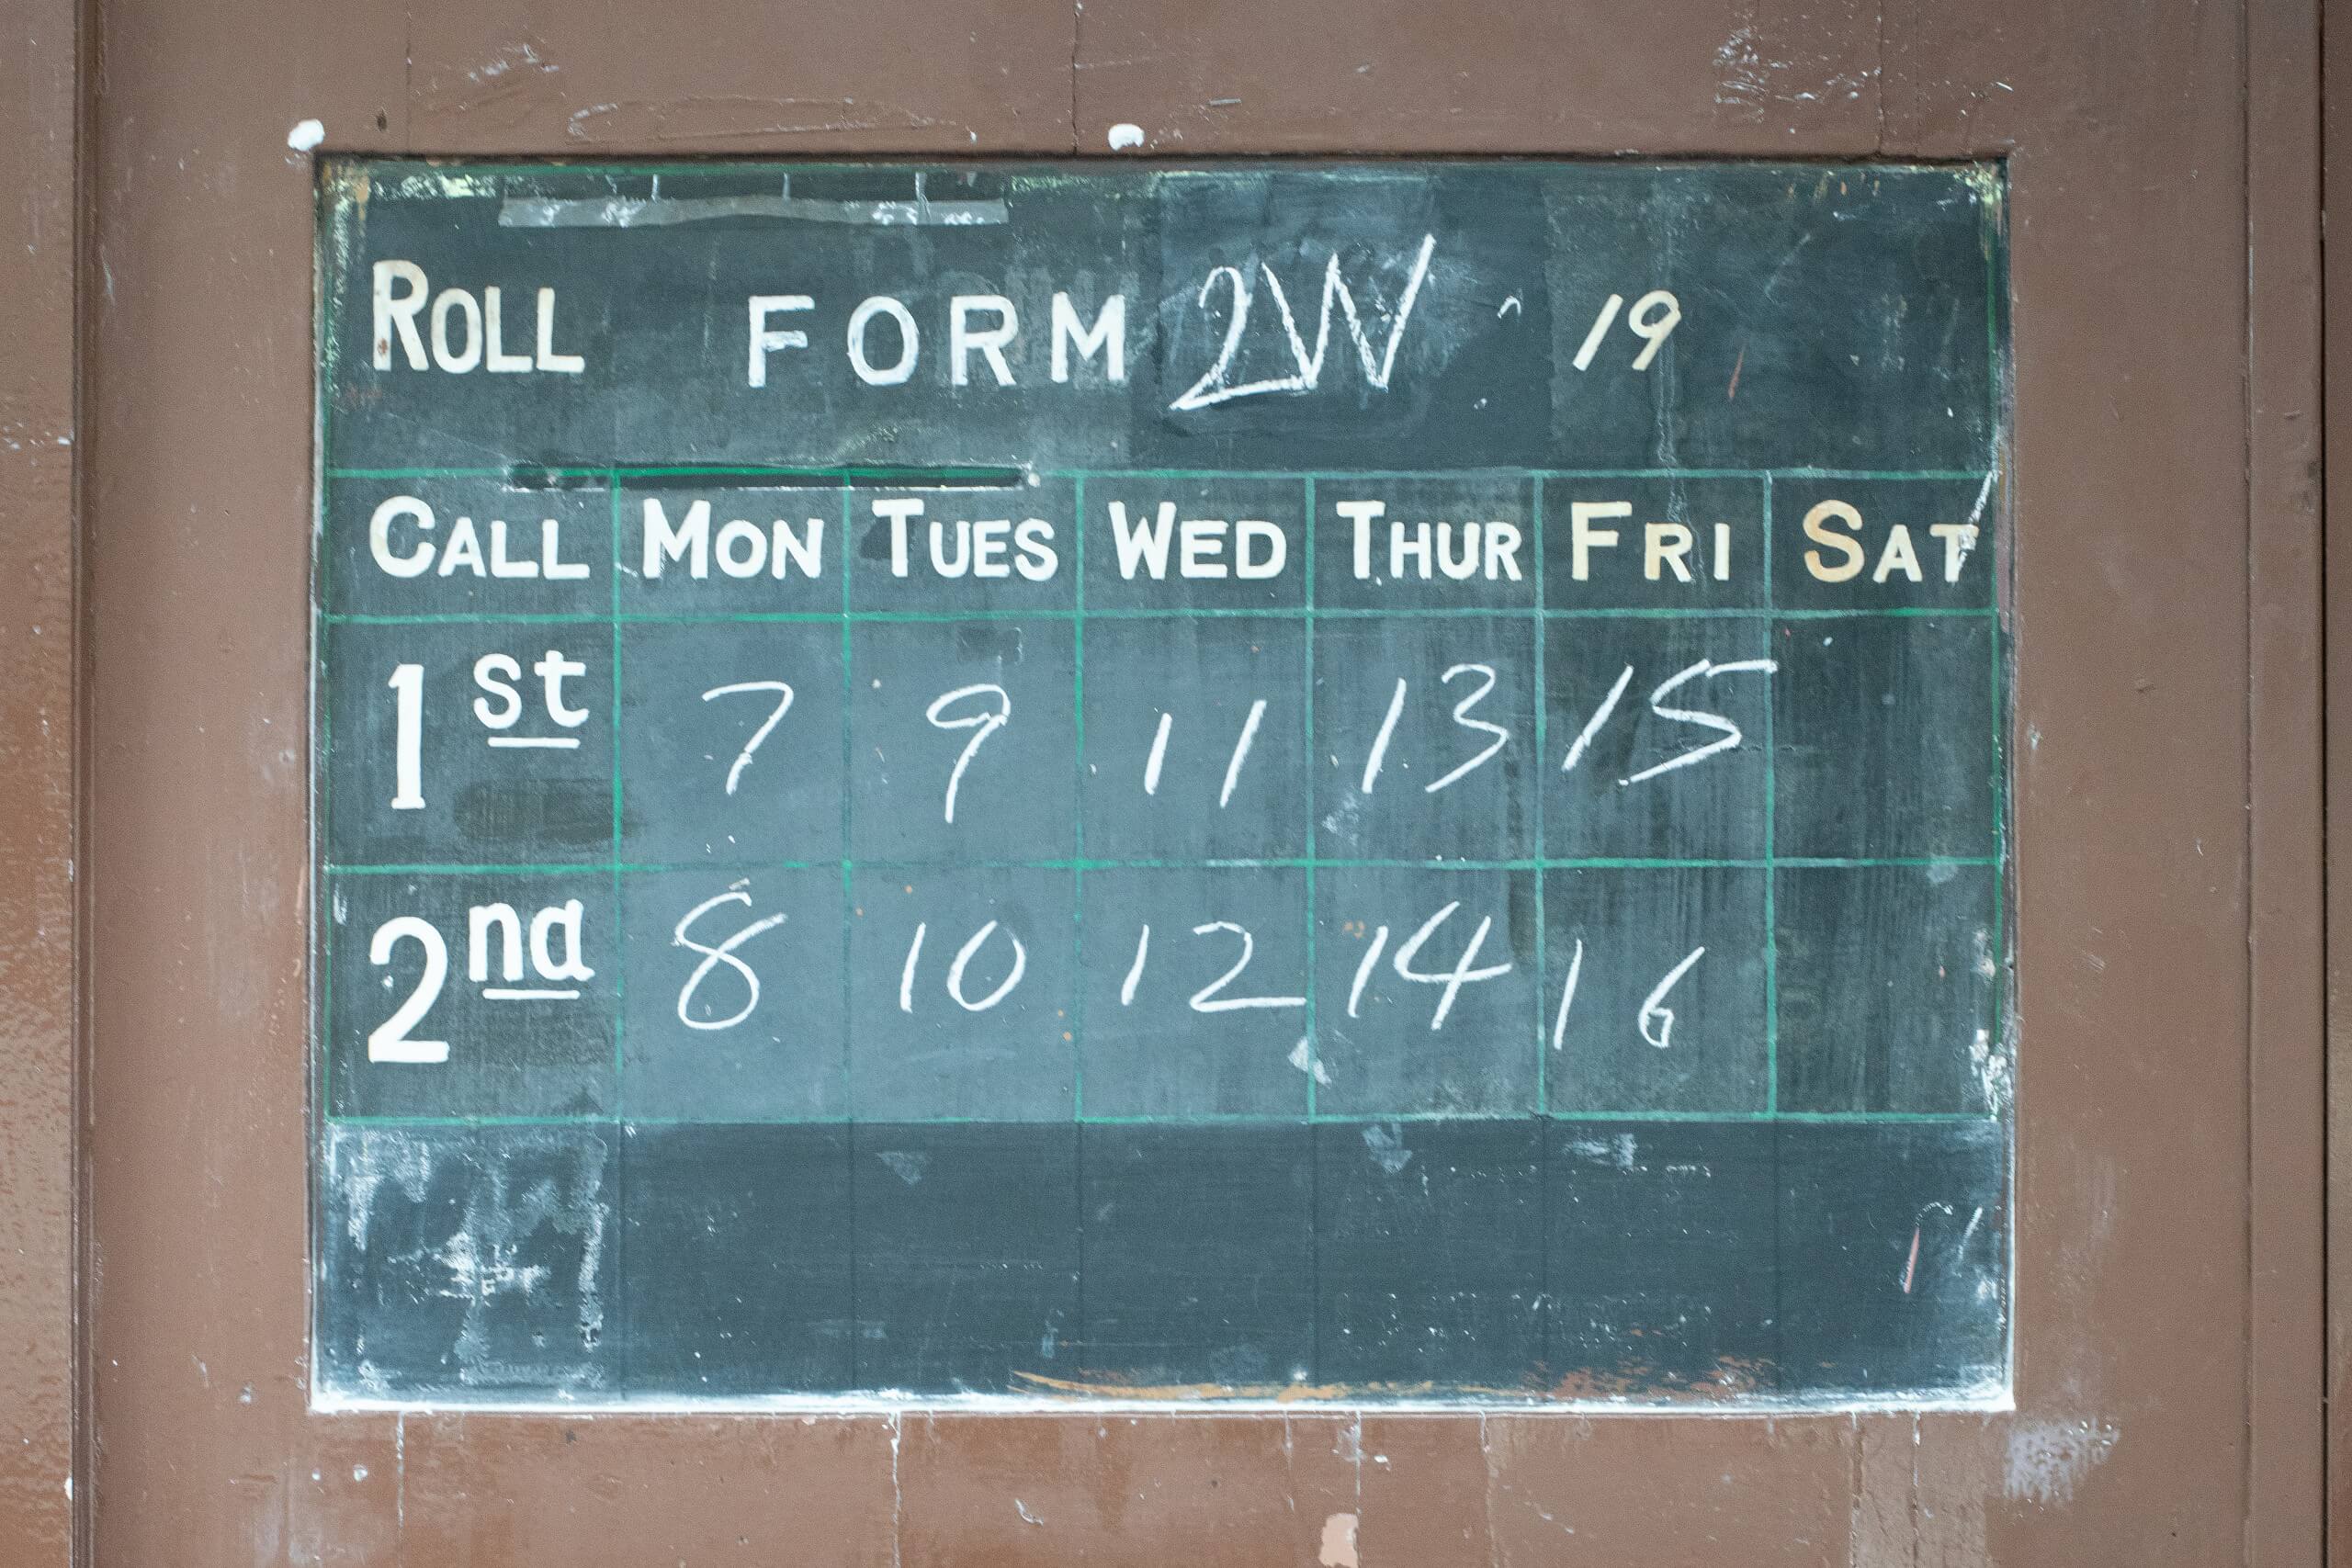 ROLL FORM 2W 19
CALL MON TUES WED THUR FRI SAT
1st 7 9 11 13 15
2nd 8 10 12 14 16